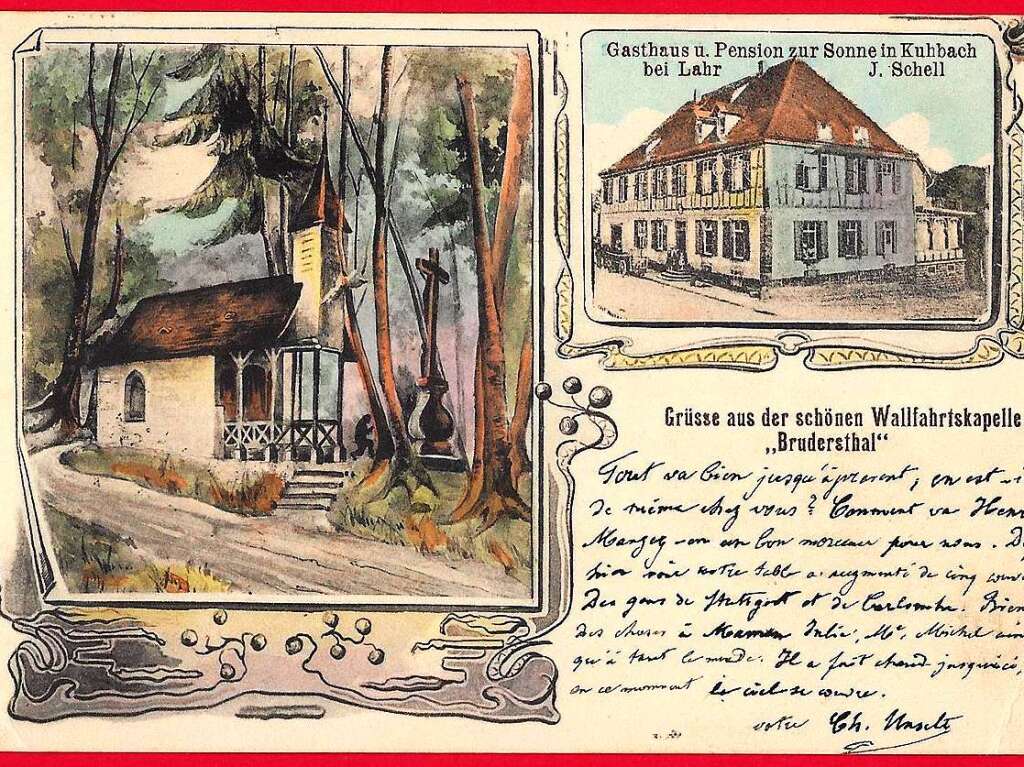 Gasthaus u. Pension zur Sonne in Kuhbach
bei Lahr J. Schell
Grüsse aus der schönen Wallfahrtskapelle
„Brudersthal“
Tout va bien jusqu'à présent, en est-i
de même chez vous? Comment va Hen
Mangez-en un bon morceau pour nous. D
hier soir votre table a augmenté de cinq couv
Des gens de Stuttgart et de Carlsruhe. Bien
des choses à Maman Julie, Mr. Michel ain
qu'à tout le monde. Il a fait chaud jusqu'ici,
en ce moment le ciel se couvre.
votre Ch.